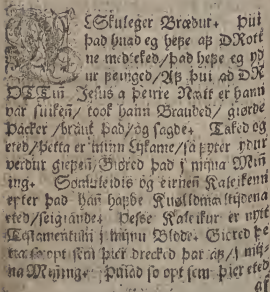 LSkuleger Brædur. Þui
Það huad eg hefe af DROtt
ne medteked/ Það hefe eg yd
ur geinged/ Að Þui ad DR
OTTin Jesus a Þeirre Natt er hann
var suiken/ took hann BraudED/ giørde
Þacker/ braut Það/ og sagde. Taked og
eted/ Þetta er minn Lykame/ sa fyrer ydur
verdur giefen/ Giøred Það j mijna Mijn
ing. Somuleidis og eirnen Kaleikenn
epter Það hann hafde Kuølldmaaltijdena
eted/ seigiande. Þesse Kaleikur er nytt
Testamentum j mijnu Blode. Giøred Þe
tta so opt sem Þier drecked Þar af/ j mij-
na Mijning. Þuiad so opt sem Þier eted